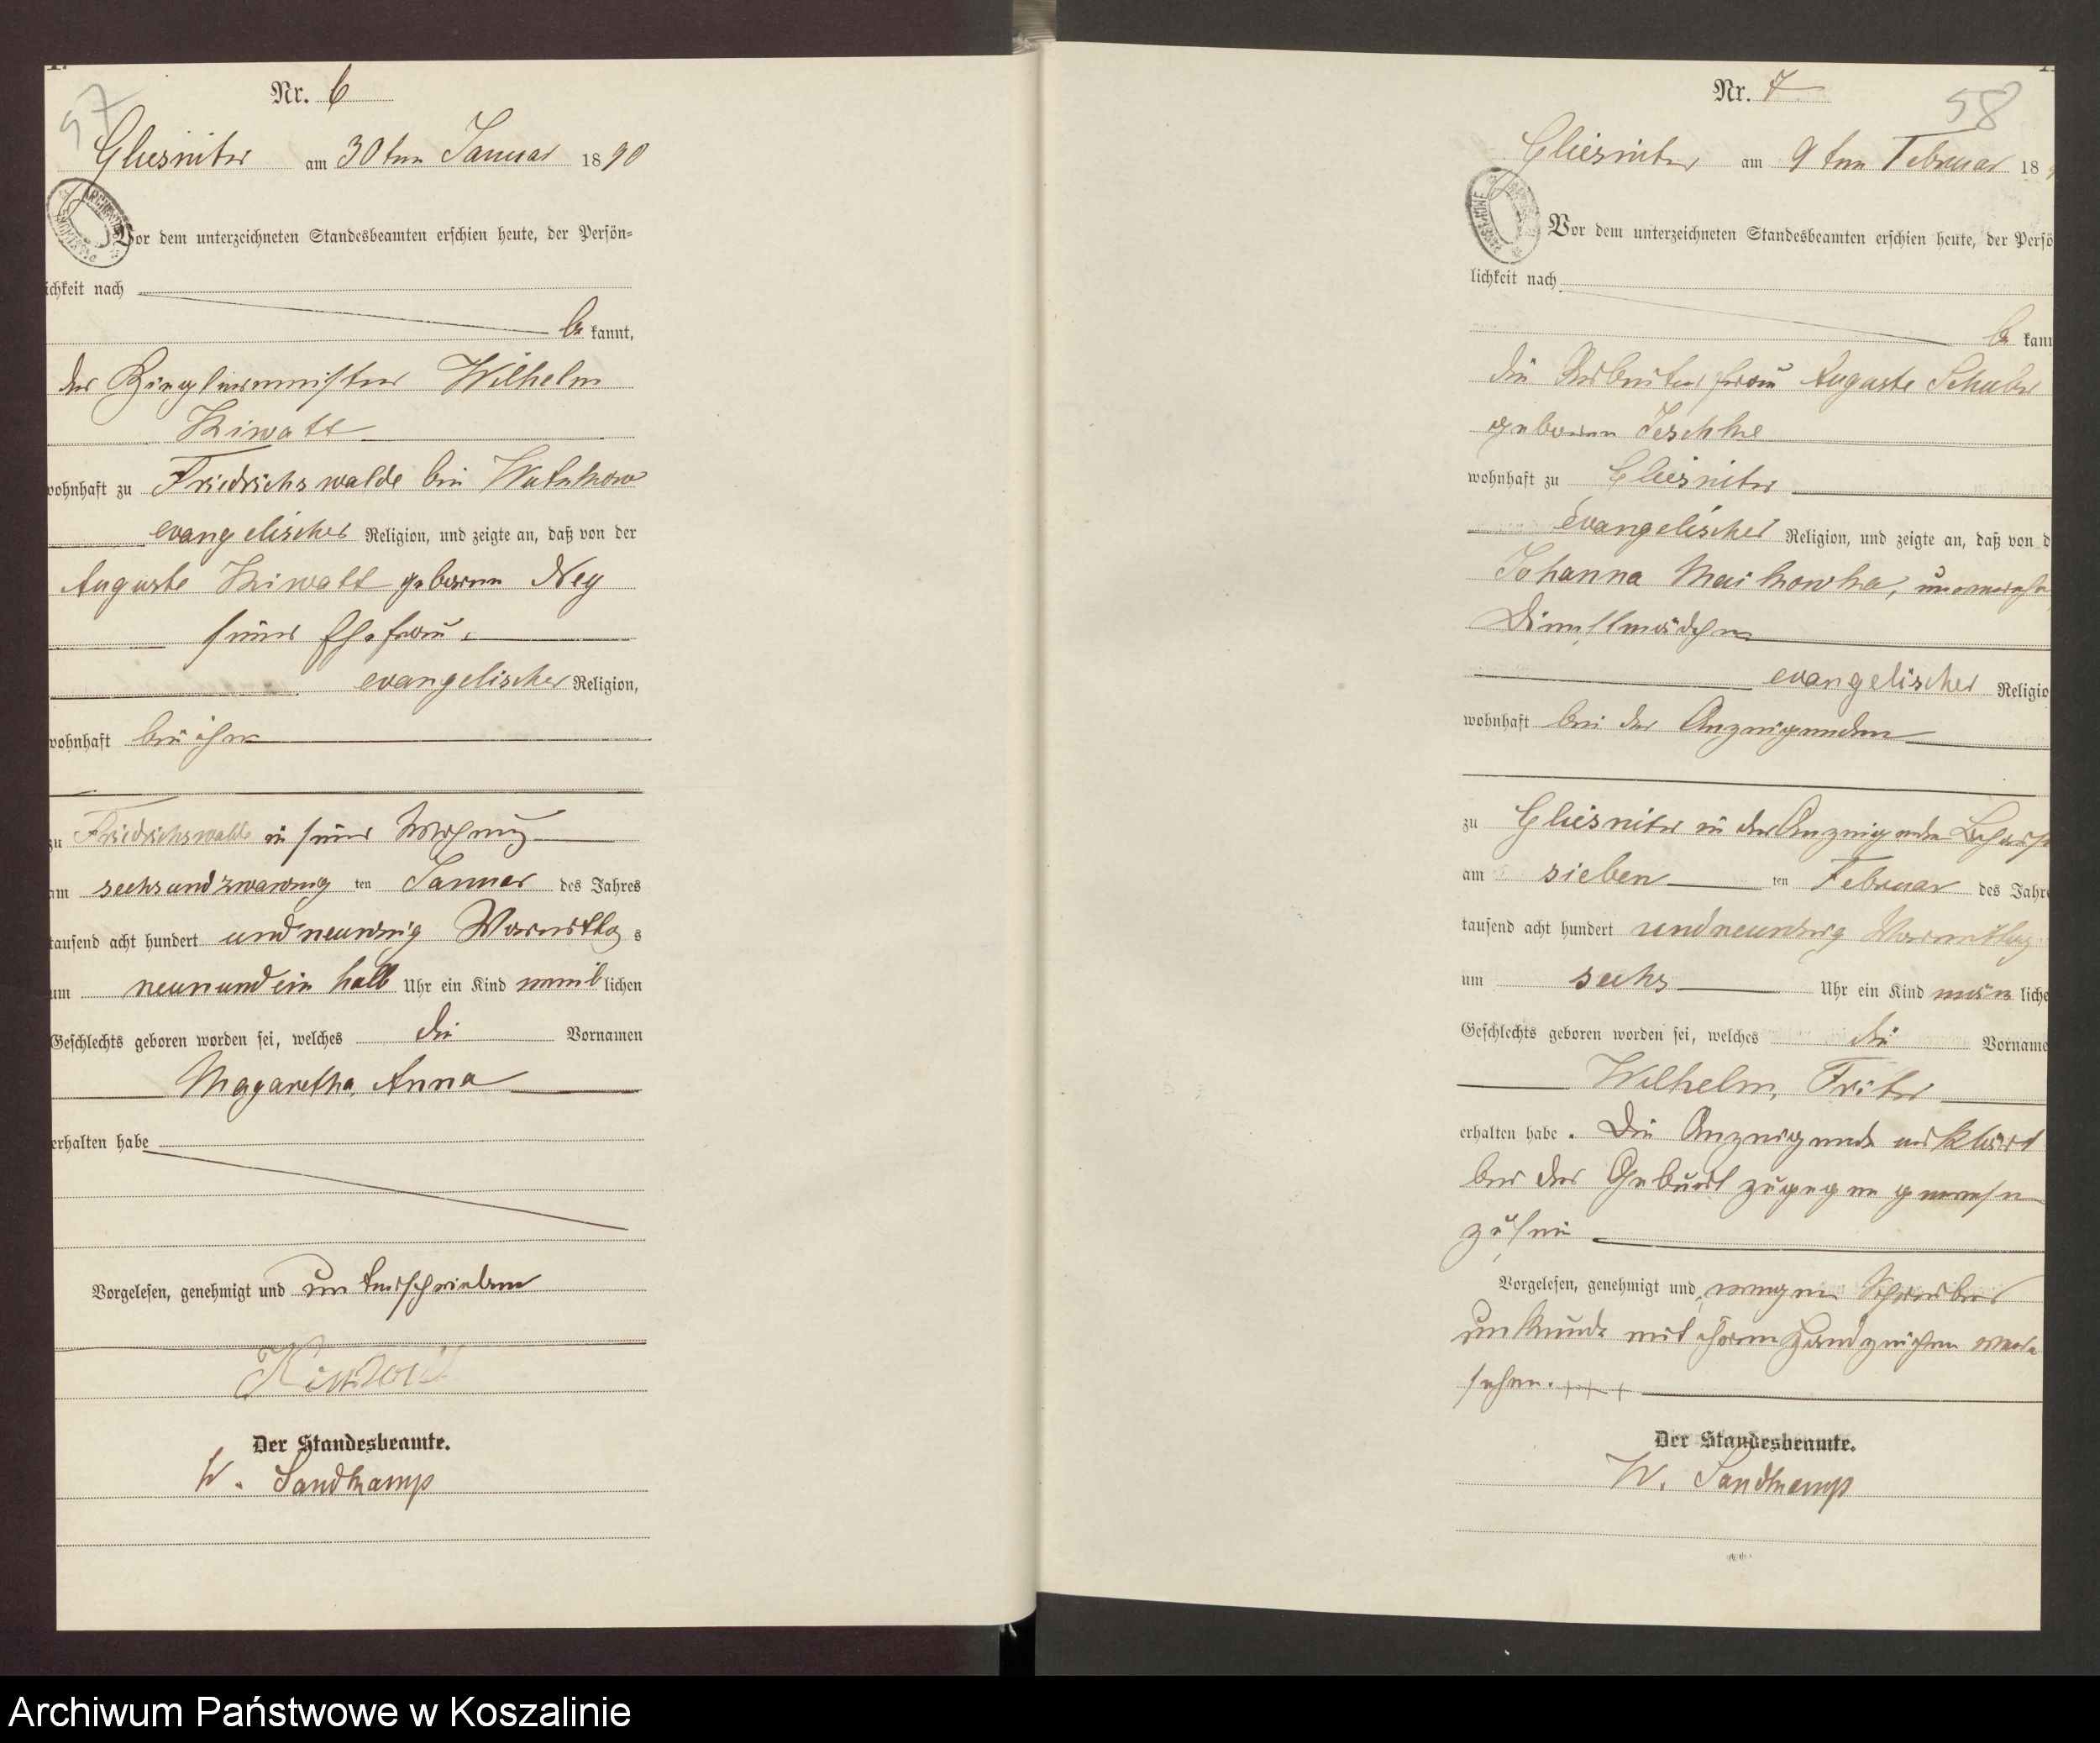 57
Nr. 6
Gliesnitz am 30ten Januar 1890
Vor dem unterzeichneten Standesbeamten erschien heute, der Persön=
lichkeit nach
be kannt,
der Zieglermeister Wilhelm
Kiwatt
wohnhaft zu Friedrichswalde bei Wutzkow
evangelischer Religion, und zeigte an, daß von der
Auguste Kiwatt geborene Ney
seiner Ehefrau
evangelischer Religion,
wohnhaft bei ihm
zu Friedrichswalde in seiner Wohnung
am sechsundzwanzig ten Januar des Jahres
tausend acht hundert und neunzig Vormittag s
um neun und ein halb Uhr ein Kind weib lichen
Geschlechts geboren worden sei, welches die Vornamen
Magaretha, Anna
erhalten habe
Vorgelesen, genehmigt und unterschrieben
Der Standesbeamte.
W. Sandkamp
58
Nr. 7
Gliesnitz am 9ten Februar 18
Vor dem unterzeichneten Standesbeamten erschien heute, der Persö
lichkeit nach
be kann
die Arbeiterfrau Auguste
geborene Jeschke
wohnhaft zu Gliesnitz
evangelischer Religion, und zeigte an, daß von d
Johanna Maikowka, unverehe
Dienstmädchen
evangelischer Religio
wohnhaft bei der Anzeigenden
zu Gliesnitz in der Anzeigenden Behausu
am sieben ten Februar des Jahre
tausend acht hundert und neunzig Vormittag
um sechs Uhr ein Kind män liche
Geschlechts geboren worden sei, welches die Vorname
Wilhelm, Fritz
erhalten habe. Die Anzeigende erklärt
bei der Geburt zugegen gewesen
zu sein
Vorgelesen, genehmigt und, wegen Schreibens
unkunde mit ihrem Handzeichen verse
sehen. +++
Der Standesbeamte.
W. Sandkamp
Archiwum Państwowe w Koszalinie